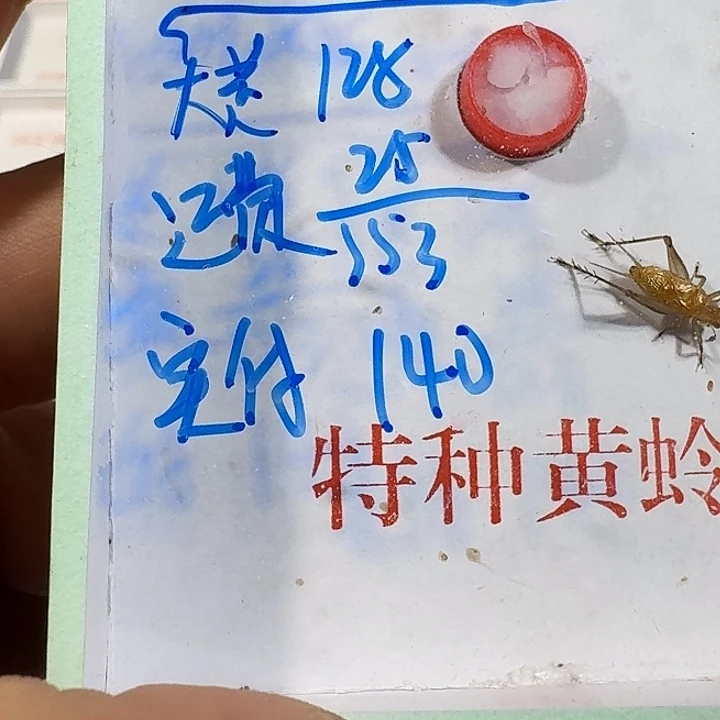 大黄 128
运费 25
153
实付 140
特种黄蛉